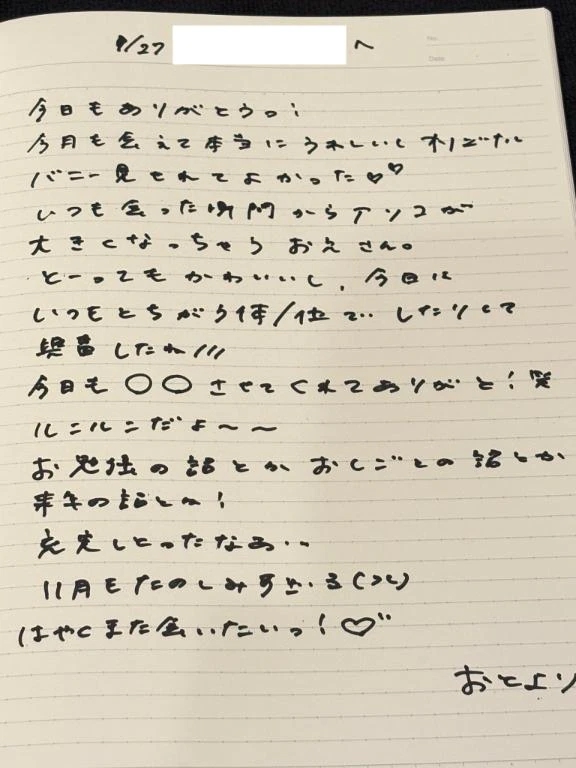 9/27 へ
No.
Date
今日もありがとうっ!
今月も会えて本当にうれしいしオリジナル
バニー見せれてよかった♡♡
いつも会った瞬間からアソコが
大きくなっちゃうおえさん。
とーってもかわいいし、今日は
いつもとちがう体/位で‥したりして
興奮したね///
今日も〇〇させてくれてありがと!笑
ルンルンだよ〜〜
お勉強の話とかおしごとの話とか
来年の話とか!
充実しとったなあ‥
11月もたのしみすぎる(>_<)
はやくまた会いたいっ!♡
おとより